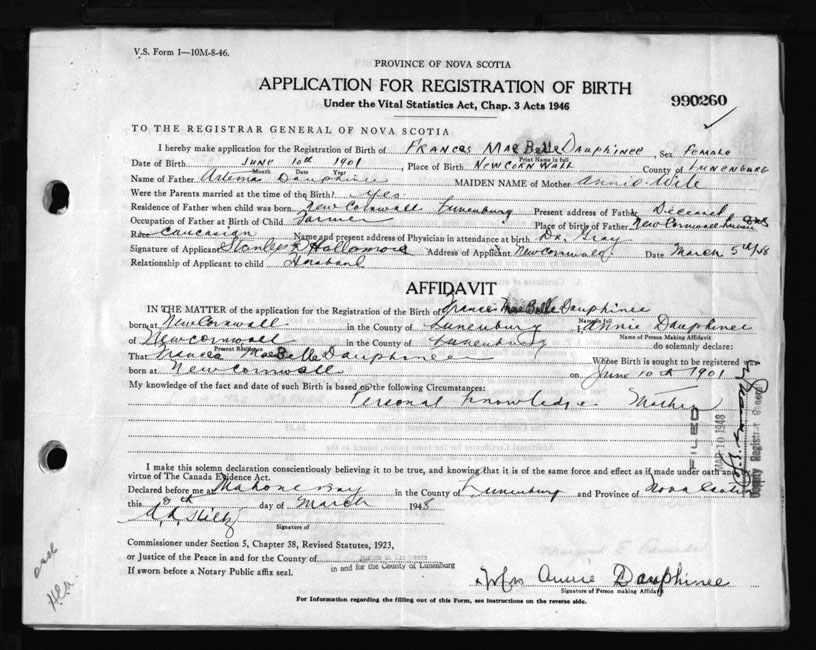 V.S. Form 1—10M-8-46.
PROVINCE OF NOVA SCOTIA
APPLICATION FOR REGISTRATION OF BIRTH
Under the Vital Statistics Act, Chap. 3 Acts 1946
990260
TO THE REGISTRAR GENERAL OF NOVA SCOTIA
I hereby make application for the Registration of Birth of Frances MaeBelle Dauphinee, Sex Female
Print Name in full
Date of Birth June 10th 1901, Place of Birth New Cornwall County of Lunenburg
Month Date Year
Name of Father Dauphinee MAIDEN NAME of Mother Annie Wile
Were the Parents married at the time of the Birth? yes
Residence of Father when child was born New Cornwall Lunenburg Present address of Father Deceased
Occupation of Father at Birth of Child Farmer Place of birth of Father New Cornwall
Race Caucasian Name and present address of Physician in attendance at birth Dr. Gray
Signature of Applicant Stanley Hallamore Address of Applicant New Cornwall Date March 5th/48
Relationship of Applicant to child Husband
AFFIDAVIT
IN THE MATTER of the application for the Registration of the Birth of Frances MaeBelle Dauphinee
Name in full
born at New Cornwall in the County of Lunenburg, Annie Dauphinee
Name of Person Making Affidavit
of New Cornwall in the County of Lunenburg do solemnly declare:
Present Residence
That Frances MaeBelle Dauphinee Whose Birth is sought to be registered was
born at New Cornwall on June 10th 1901
My knowledge of the fact and date of such Birth is based on the following Circumstances:
Personal Knowledge Mother
FILED
MAR 10 1948
Deputy Registrar General
I make this solemn declaration conscientiously believing it to be true, and knowing that it is of the same force and effect as if made under oath and
virtue of The Canada Evidence Act.
Declared before me at Mahone Bay in the County of Lunenburg and Province of Nova Scotia
this day of March 1948
Signature of
Commissioner under Section 5, Chapter 38, Revised Statutes, 1923,
or Justice of the Peace in and for the County of
in and for the County of Lunenburg
If sworn before a Notary Public affix seal.
Mrs Annie Dauphinee
Signature of Person making Affidavit
For Information regarding the filling out of this Form, see instructions on the reverse side.